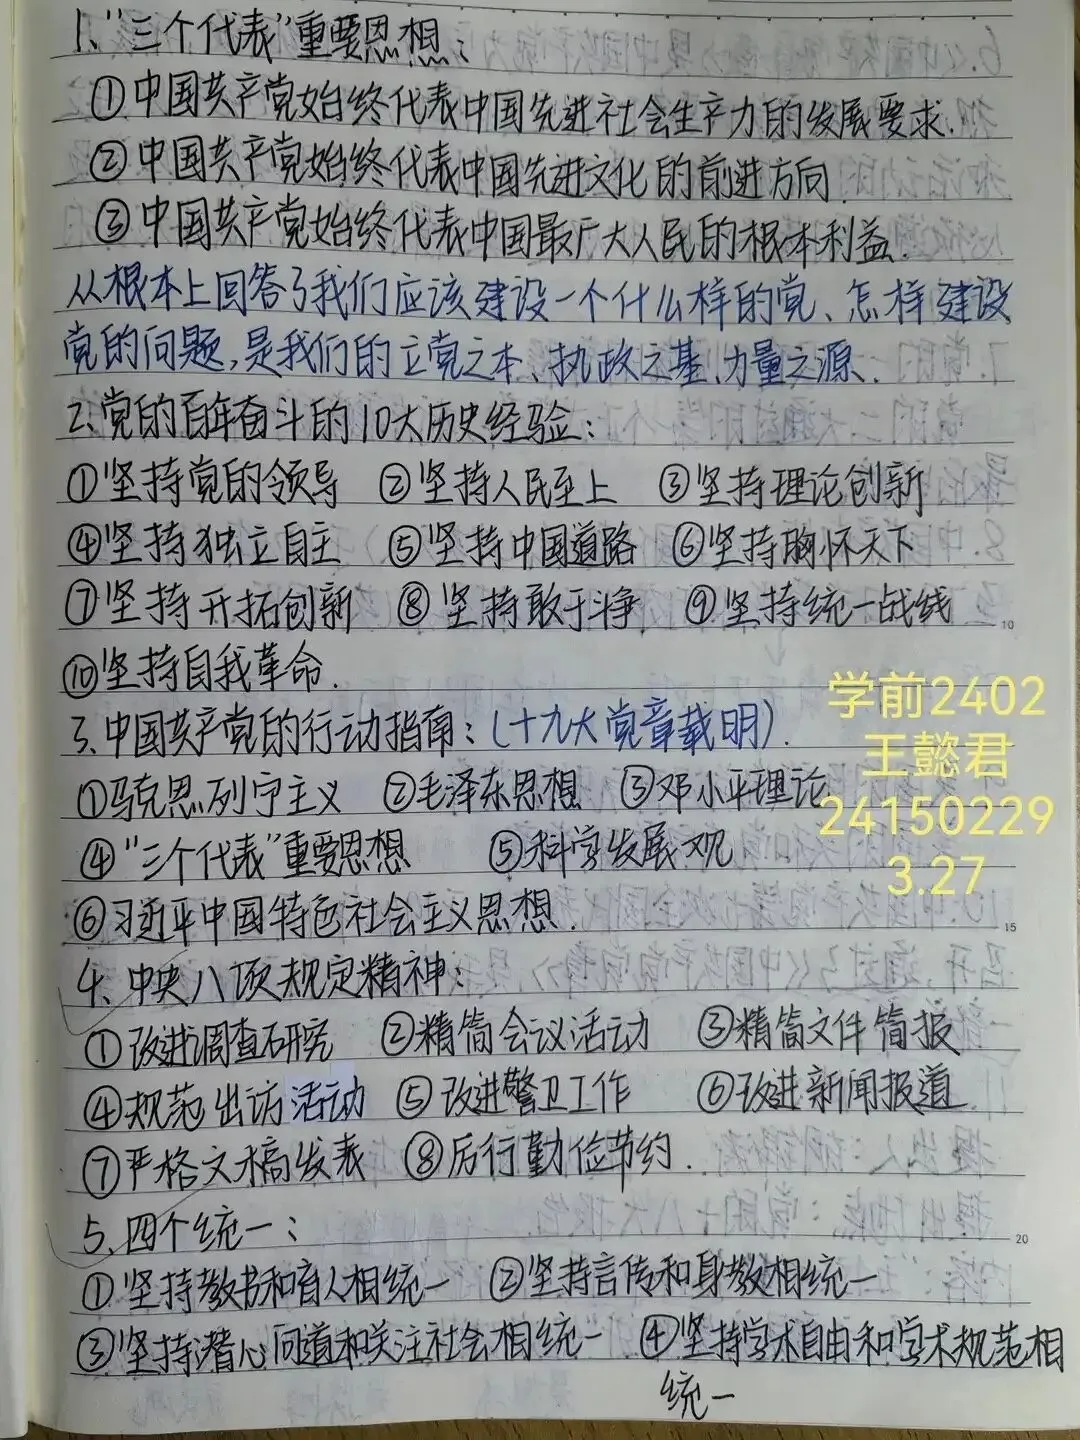 1、“三个代表”重要思想:
①中国共产党始终代表中国先进社会生产力的发展要求.
②中国共产党始终代表中国先进文化的前进方向
③中国共产党始终代表中国最广大人民的根本利益.
从根本上回答了我们应该建设一个什么样的党、怎样建设
党的问题,是我们的立党之本、执政之基、力量之源.
2、党的百年奋斗的10大历史经验:
①坚持党的领导 ②坚持人民至上 ③坚持理论创新
④坚持独立自主 ⑤坚持中国道路 ⑥坚持胸怀天下
⑦坚持开拓创新 ⑧坚持敢于斗争 ⑨坚持统一战线
10
⑩坚持自我革命.
3、中国共产党的行动指南:(十九大党章载明).
①马克思列宁主义 ②毛泽东思想 ③邓小平理论
④“三个代表”重要思想 ⑤科学发展观
⑥习近平中国特色社会主义思想.
15
4、中央八项规定精神:
①改进调查研究 ②精简会议活动 ③精简文件简报
④规范出访活动 ⑤改进警卫工作 ⑥改进新闻报道
⑦严格文稿发表 ⑧厉行勤俭节约.
5、四个统一:
20
①坚持教书和育人相统一 ②坚持言传和身教相统一
③坚持潜心问道和关注社会相统一 ④坚持学术自由和学术规范相
统一
学前2402
王懿君
24150229
3.27